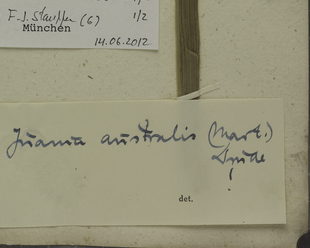 F. J. Stauffer (G) 1/2
München
14.06.2012
Juania australis (Mart.)
Drude
!
det.